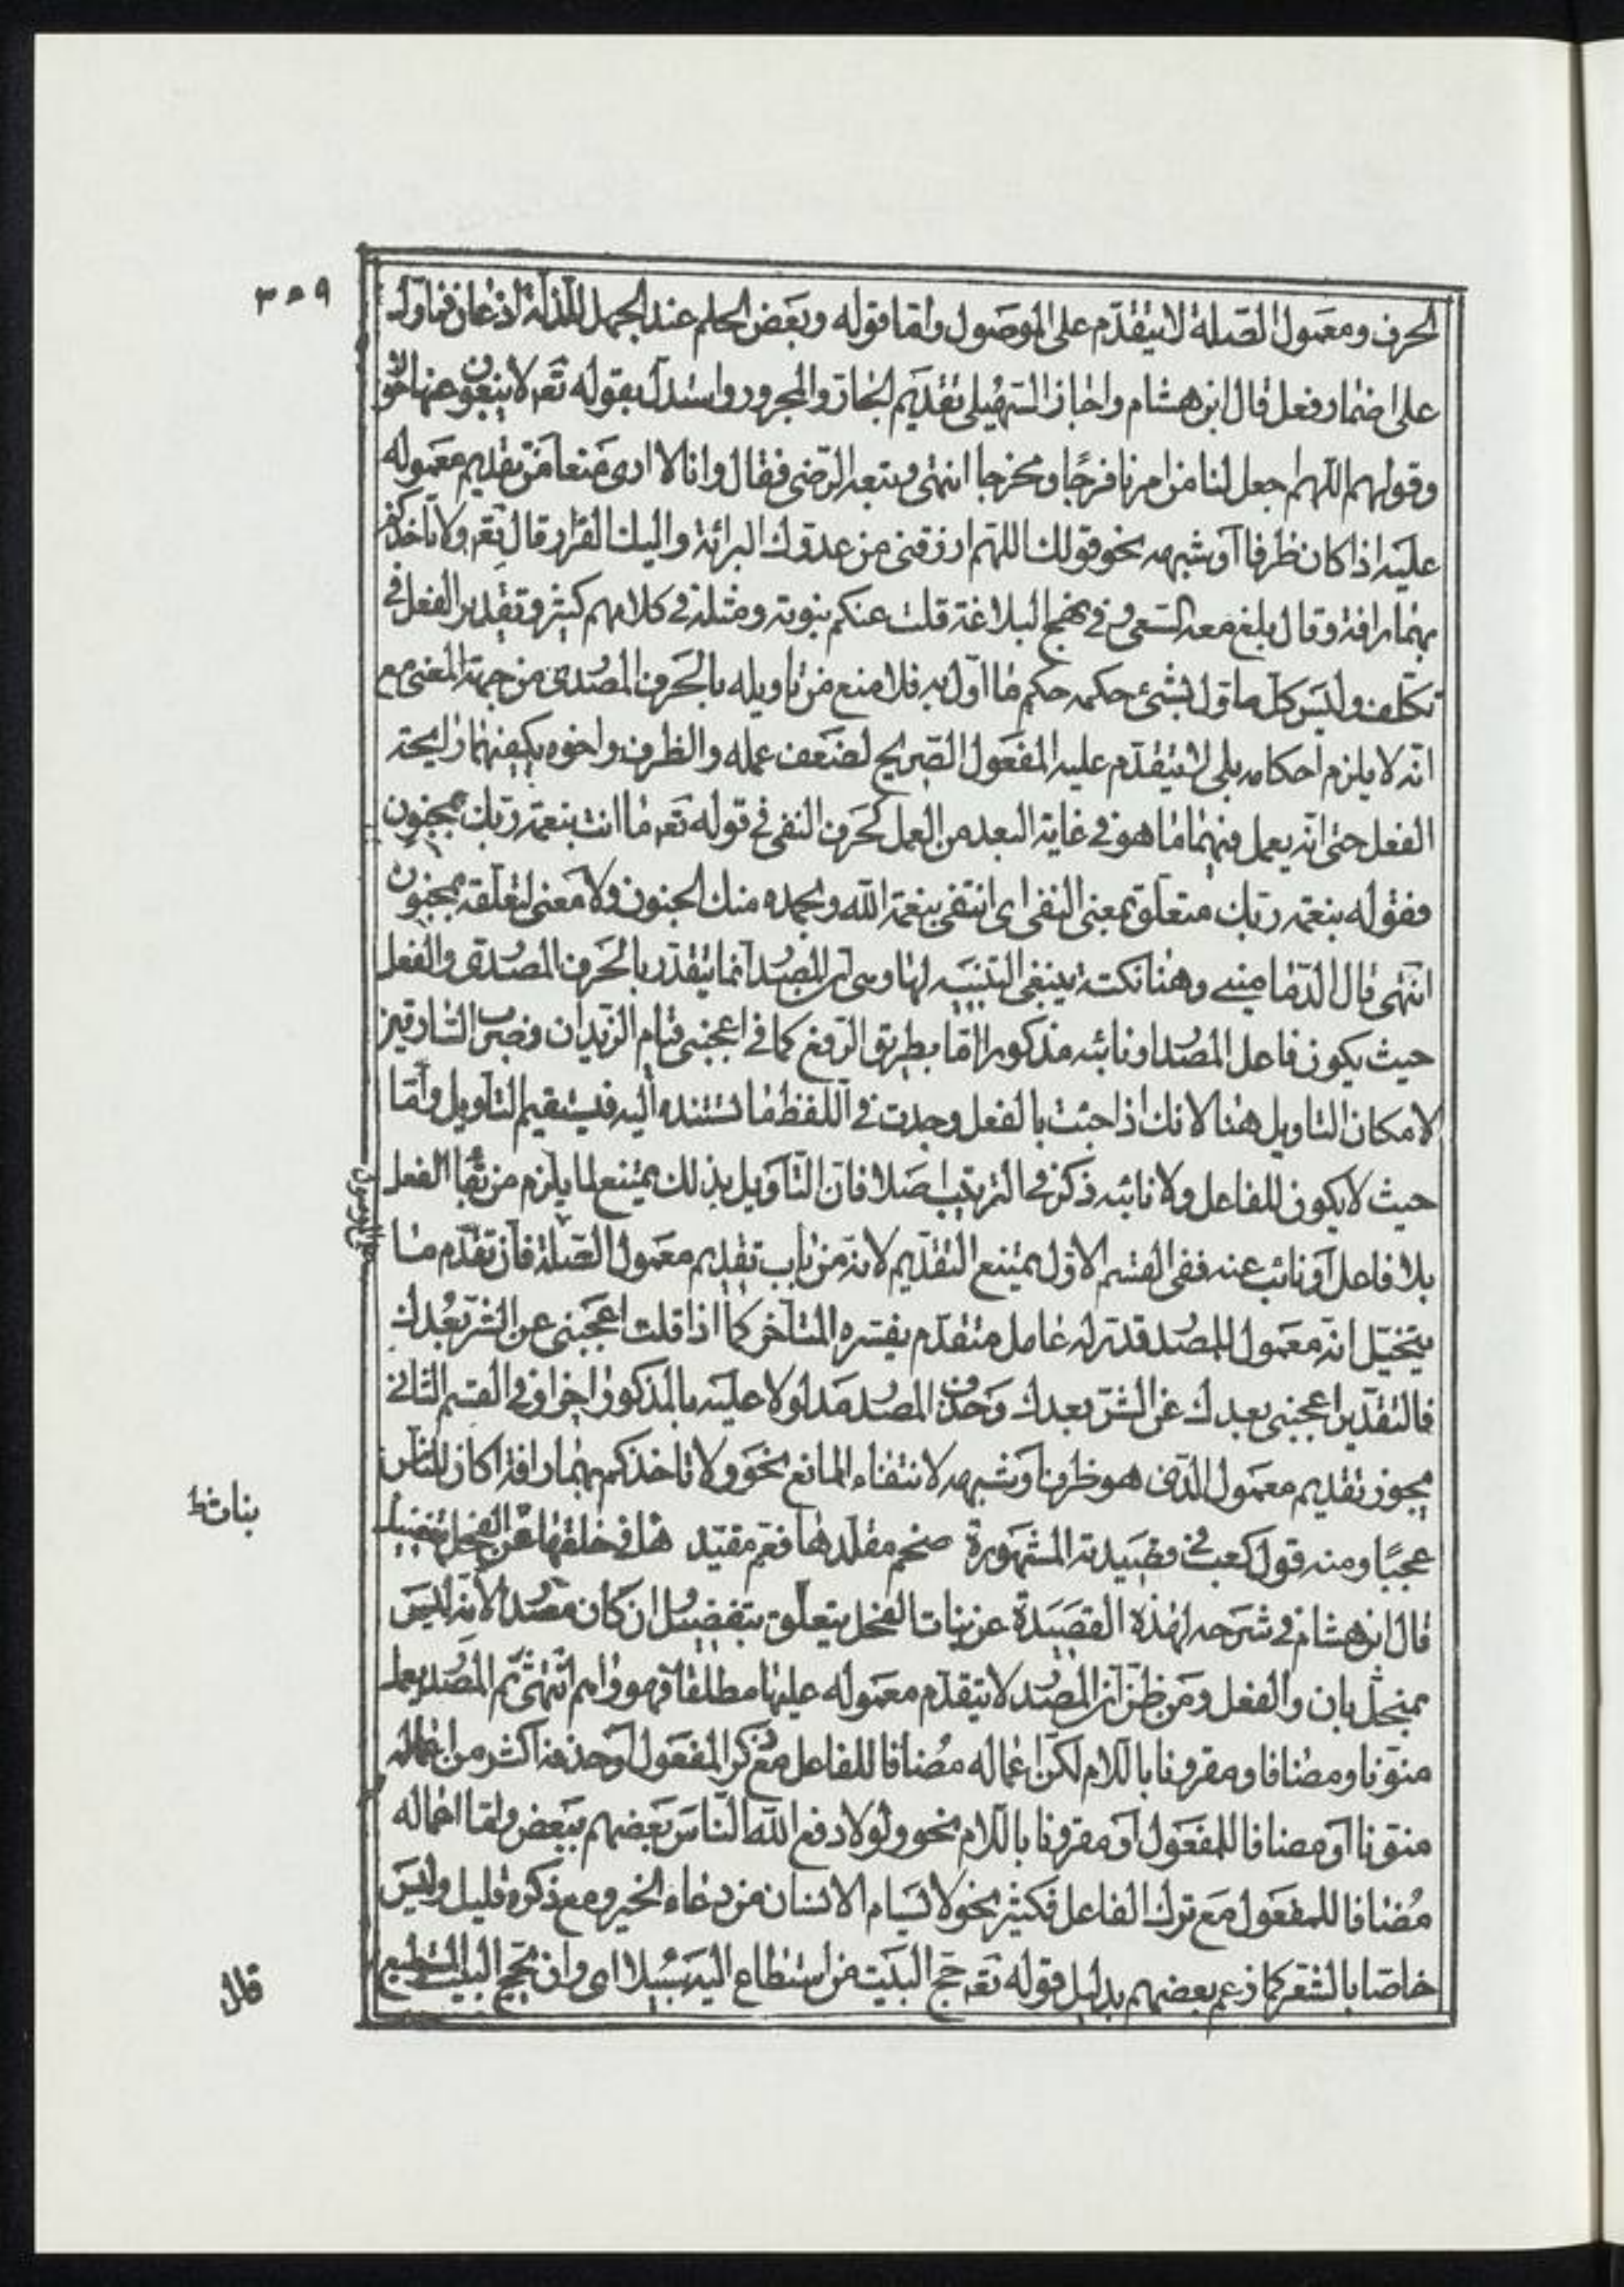 ٣٥٩
الحرف ومعمول الصلة لا يتقدّم على الموصول وامّا قوله وبعض الحلم عند الجهل للذلّة اذعان فماوّل
على اضمار فعل قال ابن هشام واجاز السّهيلى تقديم الجارّ والمجرور واستدلّ بقوله تعم لا يبغون عنها حولا
وقولهم اللّهم اجعل لنا من امرنا فرجًا ومخرجا انتهى وتبعه الرّضى فقال وانا لا ارى منعا من تقديم معموله
عليه اذا كان ظرفا أو شبهه نحو قولك اللهمّ ارزقنى من عدوّك البرائة واليك الفرار قال تعم ولا تأخذكم
بهما رافة وقال بلغ معه السّعى وفى نهج البلاغة قلت عنكم نبوته ومثله فى كلامهم كثير وتقدير الفعل فى
تكلّف وليس كلّ ما اوّل بشئ حكمه حكم ما اوّل به فلا منع من تاويله بالحرف المصدرى من جهة المعنى مع
انّه لا يلزم احكامه بلى لا يتقدّم عليه المفعول الصّريح لضعف عمله والظرف واخوه يكفيهما رايحة
الفعل حتى انّه يعمل فيهما ما هو فى غاية البعد من العمل كحرف النفى فى قوله تعم ما انت بنعمة ربّك بمجنون
فقوله بنعمة ربّك متعلّق بمعنى النفى اى انتفى بنعمة الله وبحمده منك الجنون ولا معنى لتعلّقه بمجنون
انتهى قال الدّمامينى وهنا نكتة ينبغى التنبيه لها وهى ان المصدر انما يتقدّر بالحرف المصدرى والفعل
حيث يكون فاعل المصدر او نائبه مذكورا امّا بطريق الرّفع كما فى اعجبنى قيام الزيدان وضرب السّارقين
لامكان التاويل هنا لانك اذا جئت بالفعل وجدت فى اللفظ ما تسنده اليه فيستقيم التأويل وامّا
حيث لا يكون للفاعل ولا نائبه ذكر فى التركيب اصلا فان التّأويل بذلك يمتنع لما يلزم من بقاء الفعل
بلا فاعل أو نائب عنه ففى القسم الاوّل يمتنع التقديم لانه من باب تقديم معمول الصّلة فان تقدّم ما
يتخيّل انّه معمول للمصدر قدّر له عامل متقدّم يفسّره المتأخر كما اذا قلت اعجبنى عن الشرّ بعدك
فالتقدير اعجبنى بعدك عن الشرّ بعدك وحذف المصدر مدلولا عليه بالمذكور اخرا وفى القسم الثانى
يجوز تقديم معمول الّذى هو ظرف او شبهه لانتفاء المانع نحو ولا تاخذكم بهما رافة اكان للناس
عجبًا ومنه قول كعب فى قصيدته المشهورة ضخم مقلّدها فعم مقيّد ها فى خلقها عن الفحل تفضيل
بنات
قال ابن هشام فى شرحه لهذه القصيدة عن بنات الفحل يتعلّق بتفضيل ان كان مصدرا لانه ليس
بمنحلّ بان والفعل ومن ظن ان المصدر لا يتقدّم معموله عليها مطلقا فهو واهم انتهى ثمّ المصدر يعمل
منوّنا ومضافا ومقرونا باللام لكن اعماله مضافا للفاعل مع ذكر المفعول أو حذفه اكثر من اعماله
منوّنا أو مضافا للمفعول أو مقرونا باللام نحو ولولا دفع الله النّاس بعضهم ببعض وامّا اعماله
مُضافا للمفعول مع ترك الفاعل فكثير نحو لا يسام الانسان من دعاء الخير ومع ذكره قليل وليس
خاصّا بالشعر كما زعم بعضهم بدليل قوله تعم حجّ البيت من استطاع اليه سبيلا اى وان يحجّ البيت المستطيع
قال